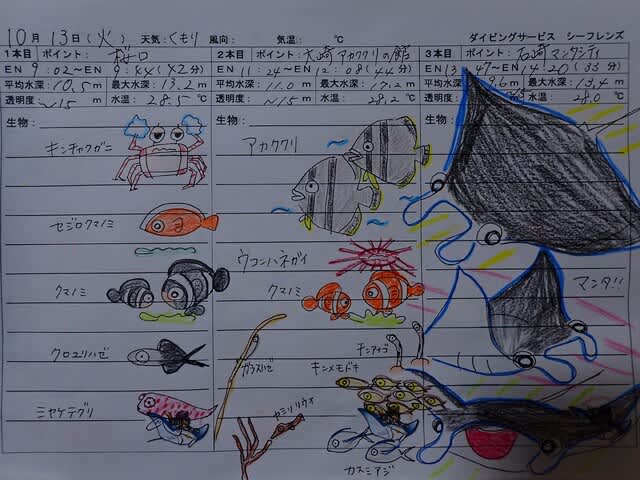 10月 13日(火) 天気:くもり 風向: 気温: ℃ ダイビングサービス シーフレンズ
1本目 ポイント: 桜口
EN 9:02~EN 9:44 (42分)
平均水深: 10.5 m 最大水深: 13.2 m
透明度: ~15 m 水温: 28.5 ℃
生物:
キンチャクガニ
セジロクマノミ
クマノミ
クロユリハゼ
ミヤケテグリ
2本目 ポイント: 大崎アカククリの館
EN 11:24~EN 12:08 (44分)
平均水深: 11.0 m 最大水深: 17.2 m
透明度: ~15 m 水温: 28.2 ℃
生物:
アカククリ
ウコンハネガイ
クマノミ
ガラスハゼ
チンアナゴ
キンメモドキ
ヤミリウオ
カスミアジ
3本目 ポイント: 石崎マンタシティ
EN 13:47~EN 14:20 (33分)
平均水深: 9.6 m 最大水深: 13.4 m
透明度: 水温: 28.0 ℃
マンタ!!